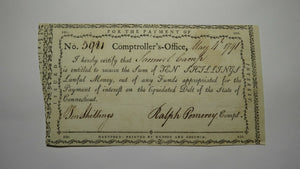 FOR THE PAYMENT OF
No. 5921 Comptroller's-Office, May 4 1791
I hereby certify that Samuel Camp
is entitled to receive the Sum of TEN SHILLINGS
Lawful Money, out of any Funds appropriated for the
Payment of interest on the Liquidated Debt of the State of
Connecticut.
Ten Shillings Ralph Pomeroy Compt.
HARTFORD: PRINTED BY HUDSON AND GOODWIN.